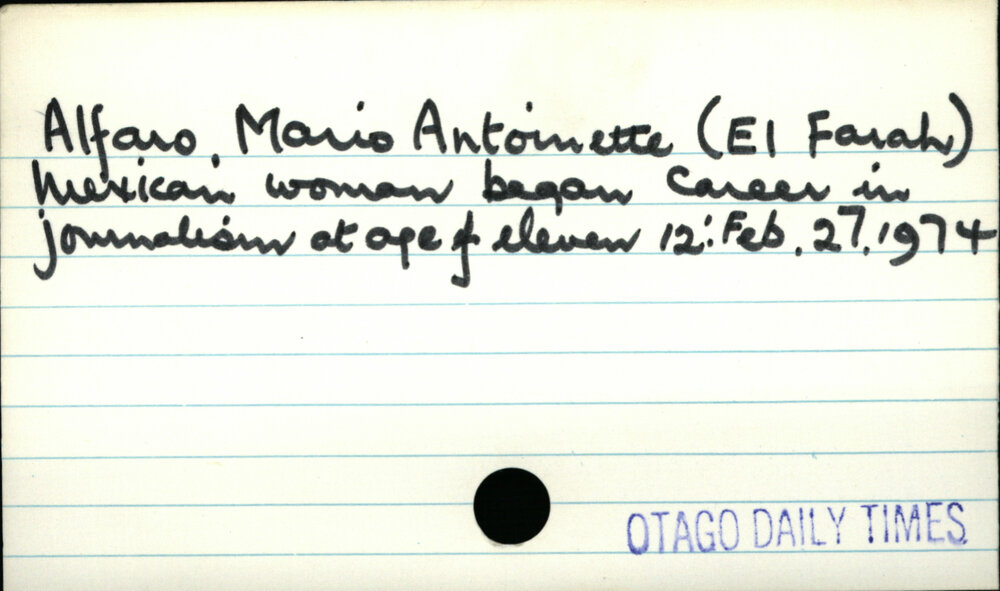 Alfaro, Mario Antoinette (El Farah)
Mexican woman began career in
journalism at age of eleven 12: Feb. 27. 1974
OTAGO DAILY TIMES